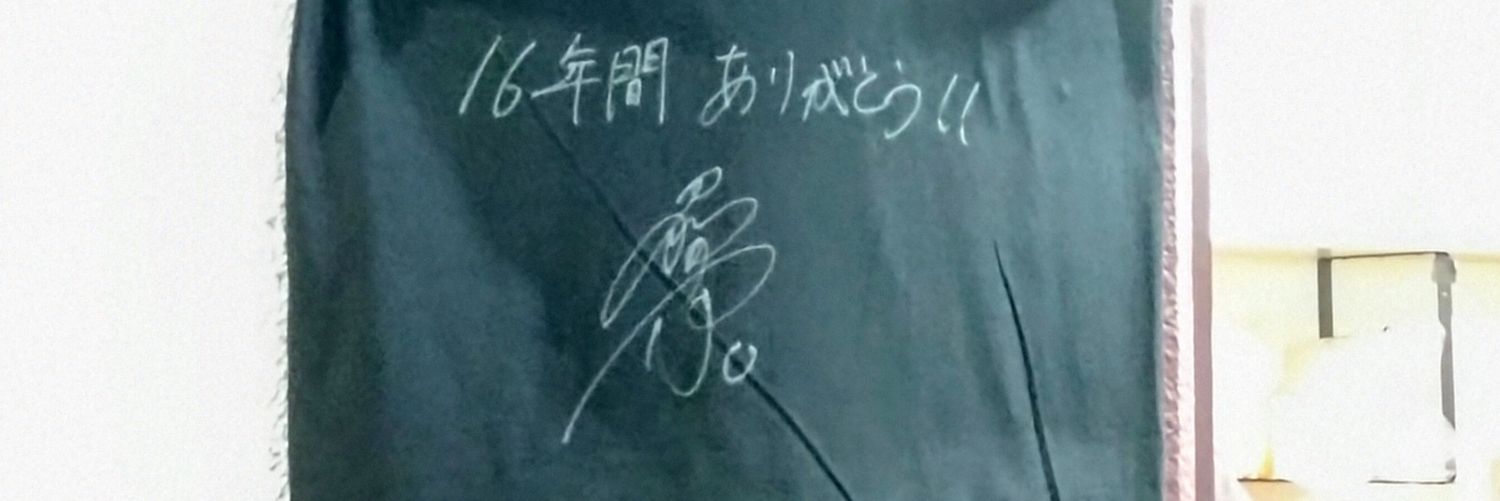 16年間 ありがとう!!